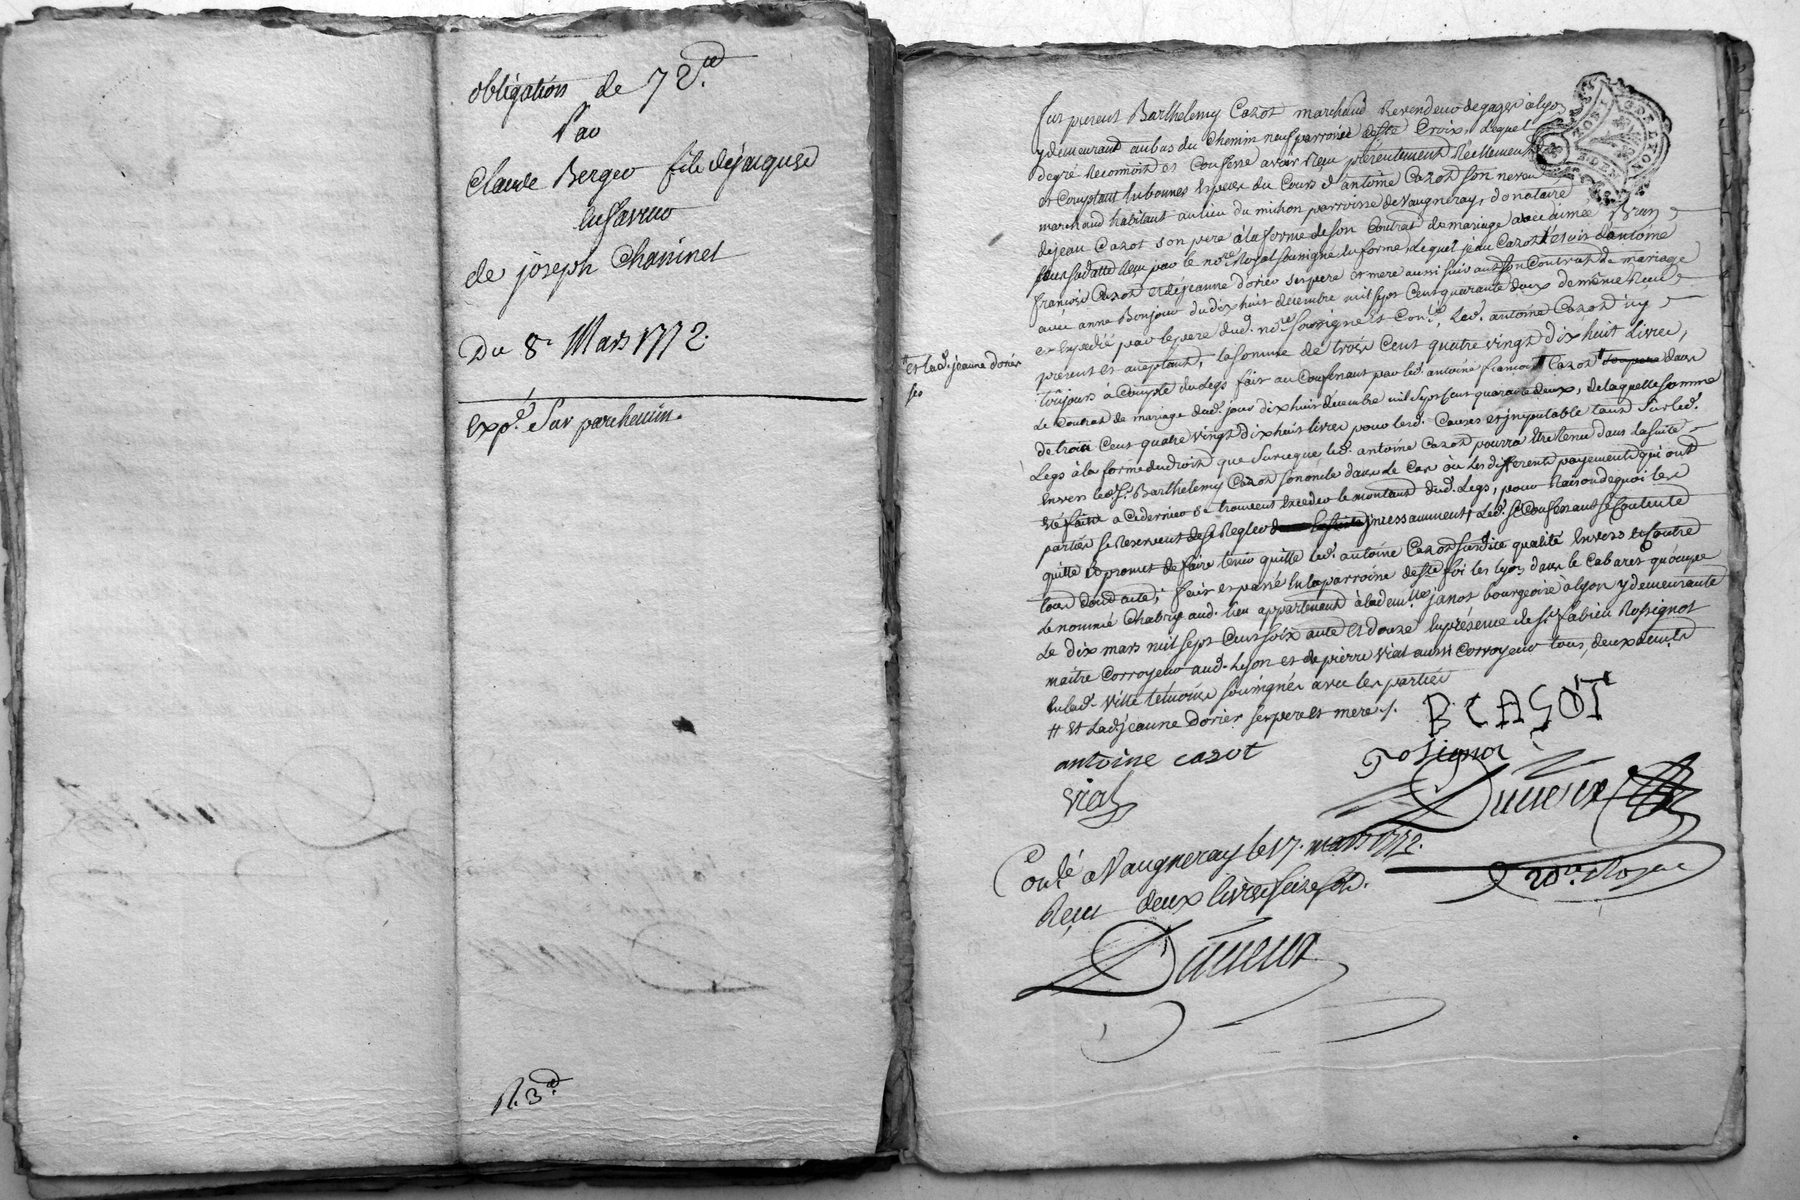 obligation de 72.
Par
Claude Berger fils de jacques
en faveur
de joseph Chaninel
Du 8e Mars 1772.
Expé. Sur parchemin.
R. 3
fut present Barthelemy Cazot marchand Revendeur de gages à lyon
y demeurant au bas du Chemin neuf parroisse de Ste Croix, Lequel
de gré Reconnoit et Confesse avoir Reçu présentement Reellement
et Comptant en bonnes Especes du Cours d'antoine Cazot son neveu
marchand habitant au lieu du michon parroisse de Vaugneray, donataire
de jean Cazot son pere à la forme de son Contrat de mariage avec aimée Brun
Reçu par le nore Royal soussigné en forme, Lequel jean Cazot Etoit d'antoine
françois Cazot et de jeanne dorier ses pere et mere aussi suivant son Contrat de mariage
avec anne Bonjour du dix huit decembre mil sept Cent quarante deux de même Reçu
et Expedié par le pere dud. nore soussigné et Conte, Led. antoine Cazot icy
present et acceptant, la somme de trois Cent quatre vingt dix huit Livres,
toujours à Compte du Legs fait au Confessant par led. antoine françois Cazot son pere dans
Le Contrat de mariage dud. jour dix huit decembre mil sept Cent quarante deux, de laquelle somme
de trois Cent quatre vingt dix huit livres pour lesd. Causes et imputable tant sur led.
Legs à la forme du droit que sur ce que led. antoine Cazot pourra Etre tenu dans la suite
Envers led. Sr. Barthelemy Cazot son oncle dans Le Cas où Les differents payements qui ont
été faits a Ce dernier se trouvent Exceder le montant dud. Legs, pour Raison de quoi les
parties se Reservent de se Regler incessamment, Led. Sr. Confessant se Contente
quitte et promet de faire tenir quitte led. antoine Cazot susdite qualité Envers et Contre
tous dont acte; fait et passé en la parroisse de Ste foi les lyon dans le Cabaret qu'ocupe
Le nommé Chatrix aud. lieu appartenant à la demlle janot bourgeoise à lyon y demeurante
Le dix mars mil sept Cent soixante et douze En présence de Sr. fabien Rossignol
maitre Corroyeur aud. Lyon et de pierre Vial aussi Corroyeur tous deux demts
En lad. ville témoins soussignés avec les parties
# Et Lad. jeanne dorier ses pere et mere /.
# et lad. jeanne dorier
ses
B CASOT
antoine cazot
rosignol
vial
Conté a Vaugneray le 17. mars 1772.
Reçu deux livres seize sols.